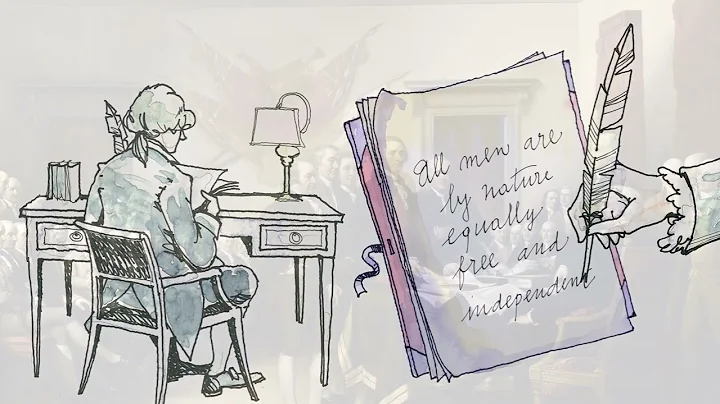 All men are
by nature
equally
free and
independent